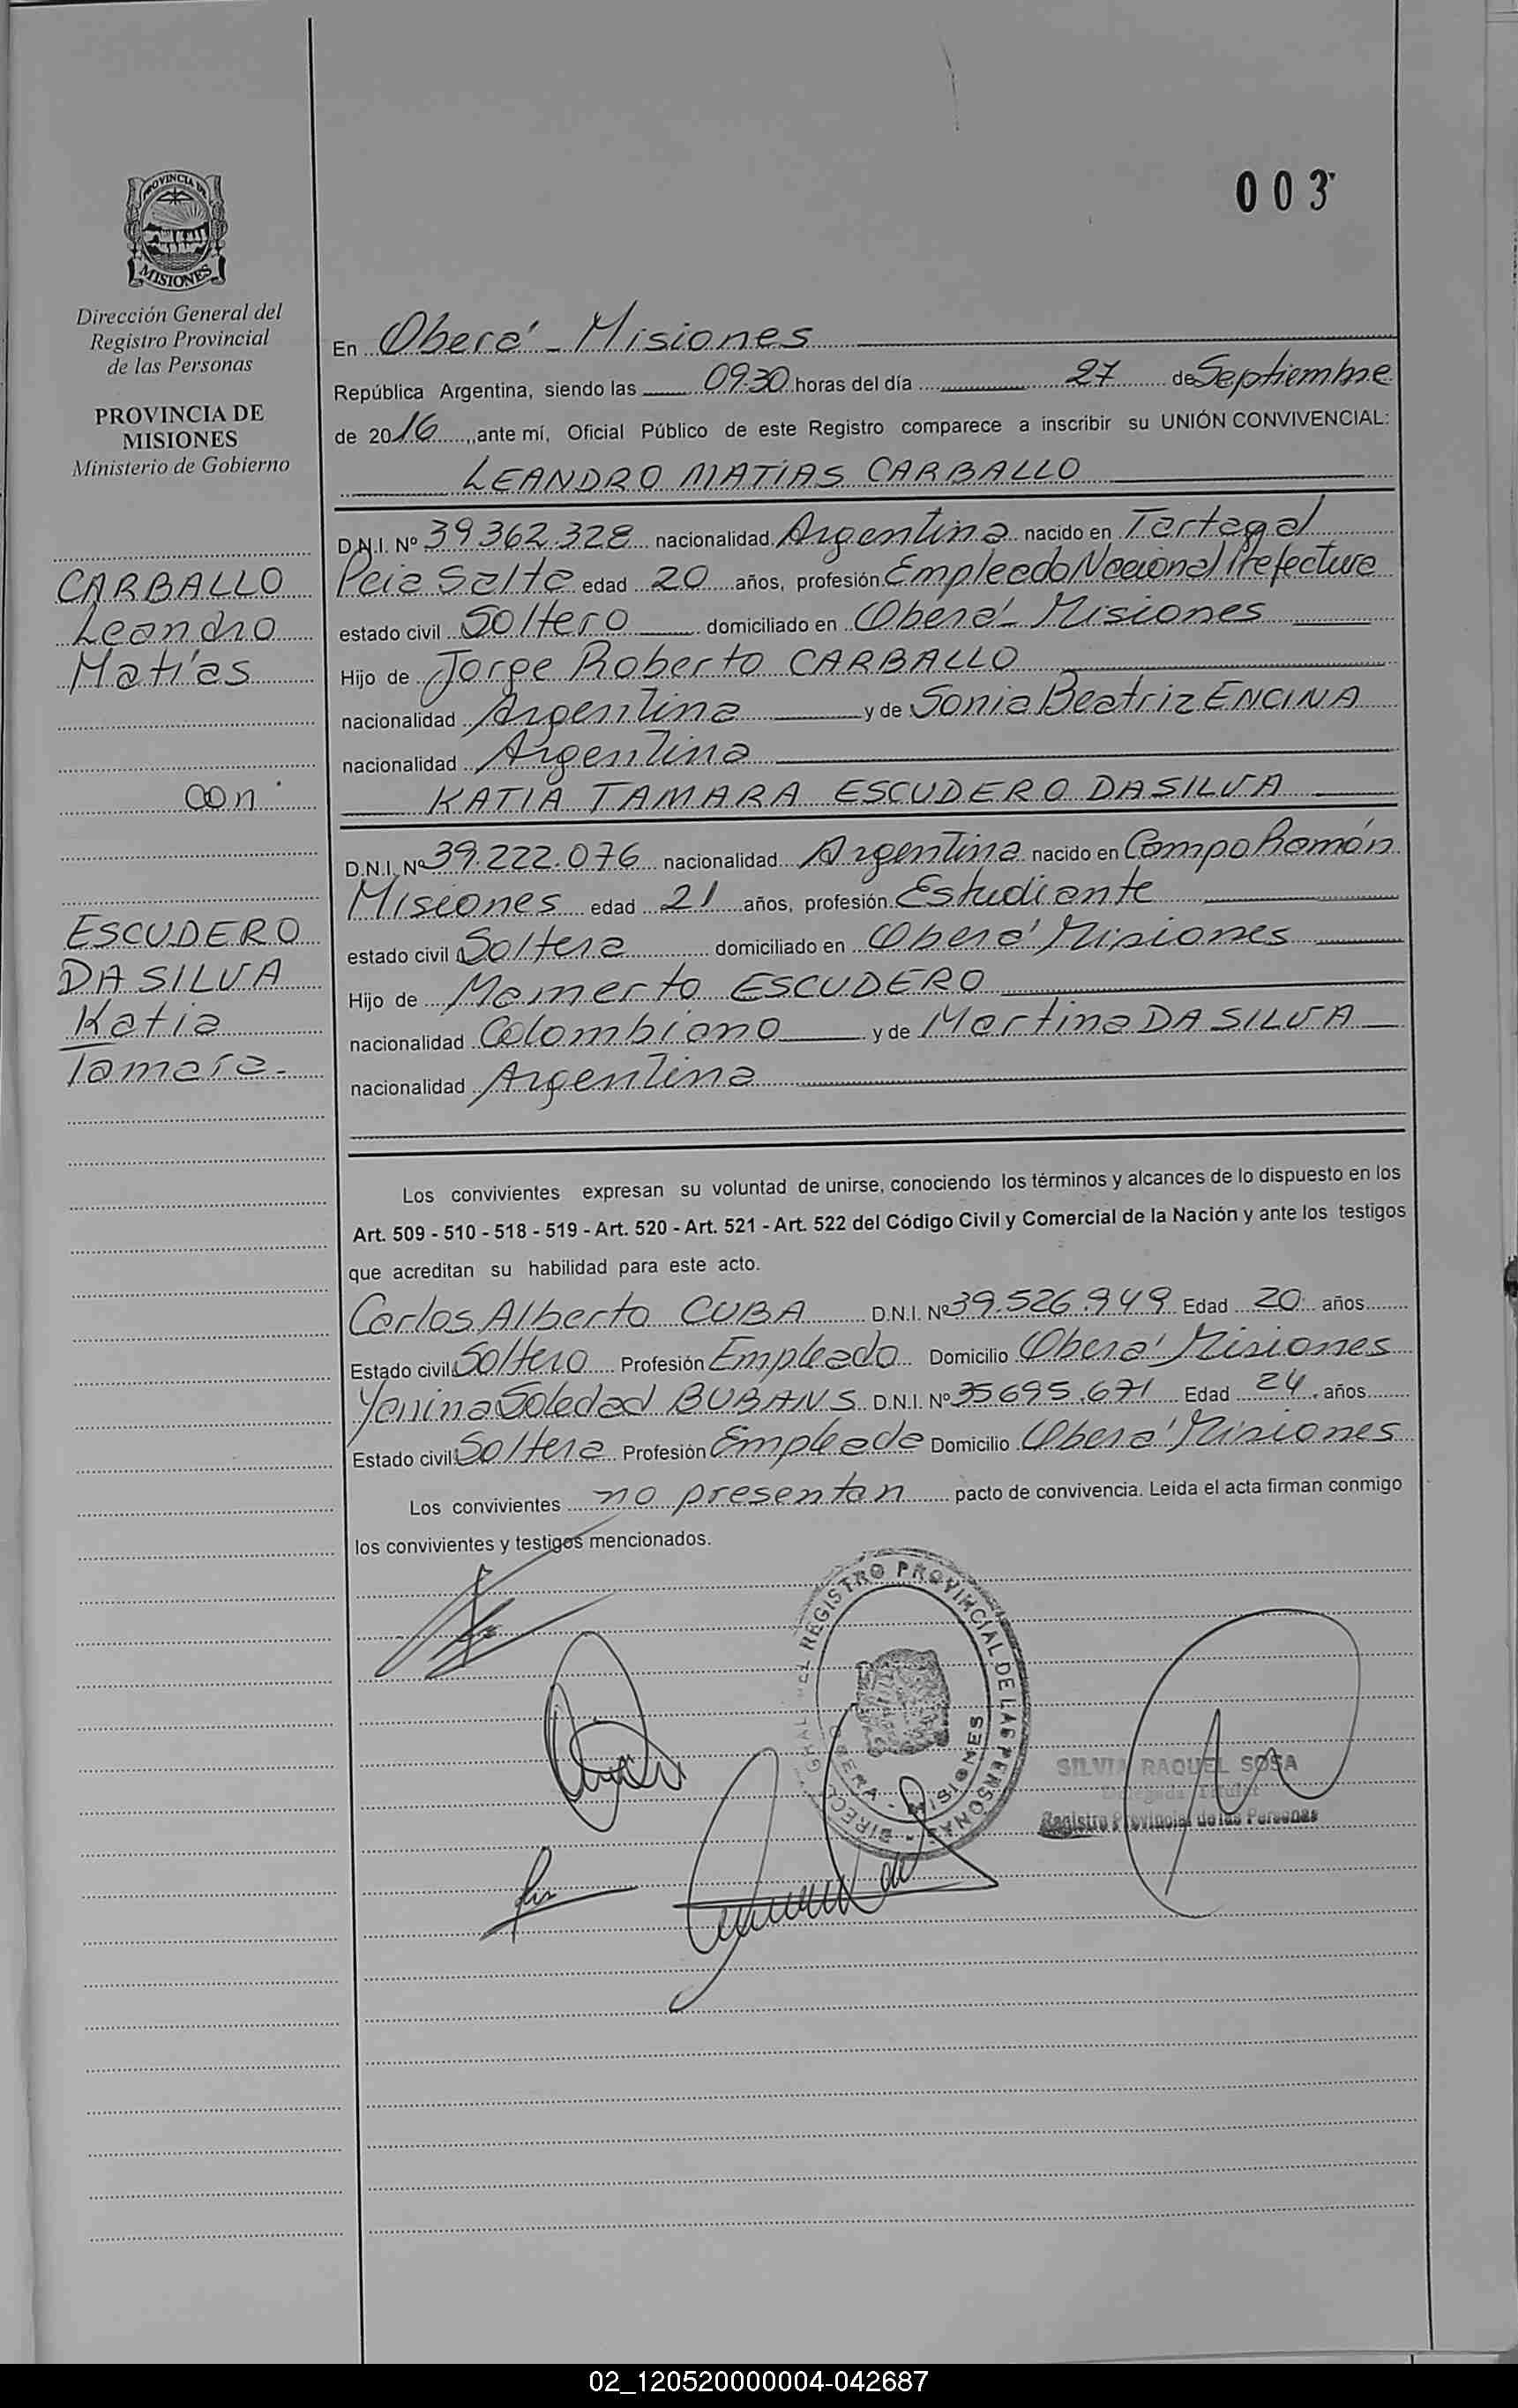 003
PROVINCIA DE
MISIONES
Dirección General del
Registro Provincial
de las Personas
PROVINCIA DE
MISIONES
Ministerio de Gobierno
CARBALLO
Leandro
Matías
con
ESCUDERO
DA SILVA
Katia
Tamara.-
En Oberá - Misiones
República Argentina, siendo las 09:30 horas del día 27 de Septiembre
de 2016, ante mí, Oficial Público de este Registro comparece a inscribir su UNIÓN CONVIVENCIAL:
LEANDRO MATÍAS CARBALLO
D.N.I. Nº 39362.328 nacionalidad Argentina nacido en Tartagal
Pcia Salta edad 20 años, profesión Empleado Nacional Prefectura
estado civil Soltero domiciliado en Oberá - Misiones
Hijo de Jorge Roberto CARBALLO
nacionalidad Argentina y de Sonia Beatriz ENCINA
nacionalidad Argentina
KATIA TAMARA ESCUDERO DA SILVA
D.N.I. Nº 39.222.076 nacionalidad Argentina nacido en Campo Ramón
Misiones edad 21 años, profesión Estudiante
estado civil Soltera domiciliado en Oberá Misiones
Hijo de Mamerto ESCUDERO
nacionalidad Colombiano y de Martina DA SILVA
nacionalidad Argentina
Los convivientes expresan su voluntad de unirse, conociendo los términos y alcances de lo dispuesto en los
Art. 509 - 510 - 518 - 519 - Art. 520 - Art. 521 - Art. 522 del Código Civil y Comercial de la Nación y ante los testigos
que acreditan su habilidad para este acto.
Carlos Alberto CUBA D.N.I. Nº 39.526.949 Edad 20 años
Estado civil Soltero Profesión Empleado Domicilio Oberá Misiones
Yanina Soledad BUBANS D.N.I. Nº 35695.671 Edad 24 años
Estado civil Soltera Profesión Empleada Domicilio Oberá Misiones
Los convivientes no presentan pacto de convivencia. Leída el acta firman conmigo
los convivientes y testigos mencionados.
REGISTRO PROVINCIAL DE LAS PERSONAS
OBERA - MISIONES
SILVIA RAQUEL SOSA
Delegada Titular
Registro Provincial de las Personas
02_120520000004-042687